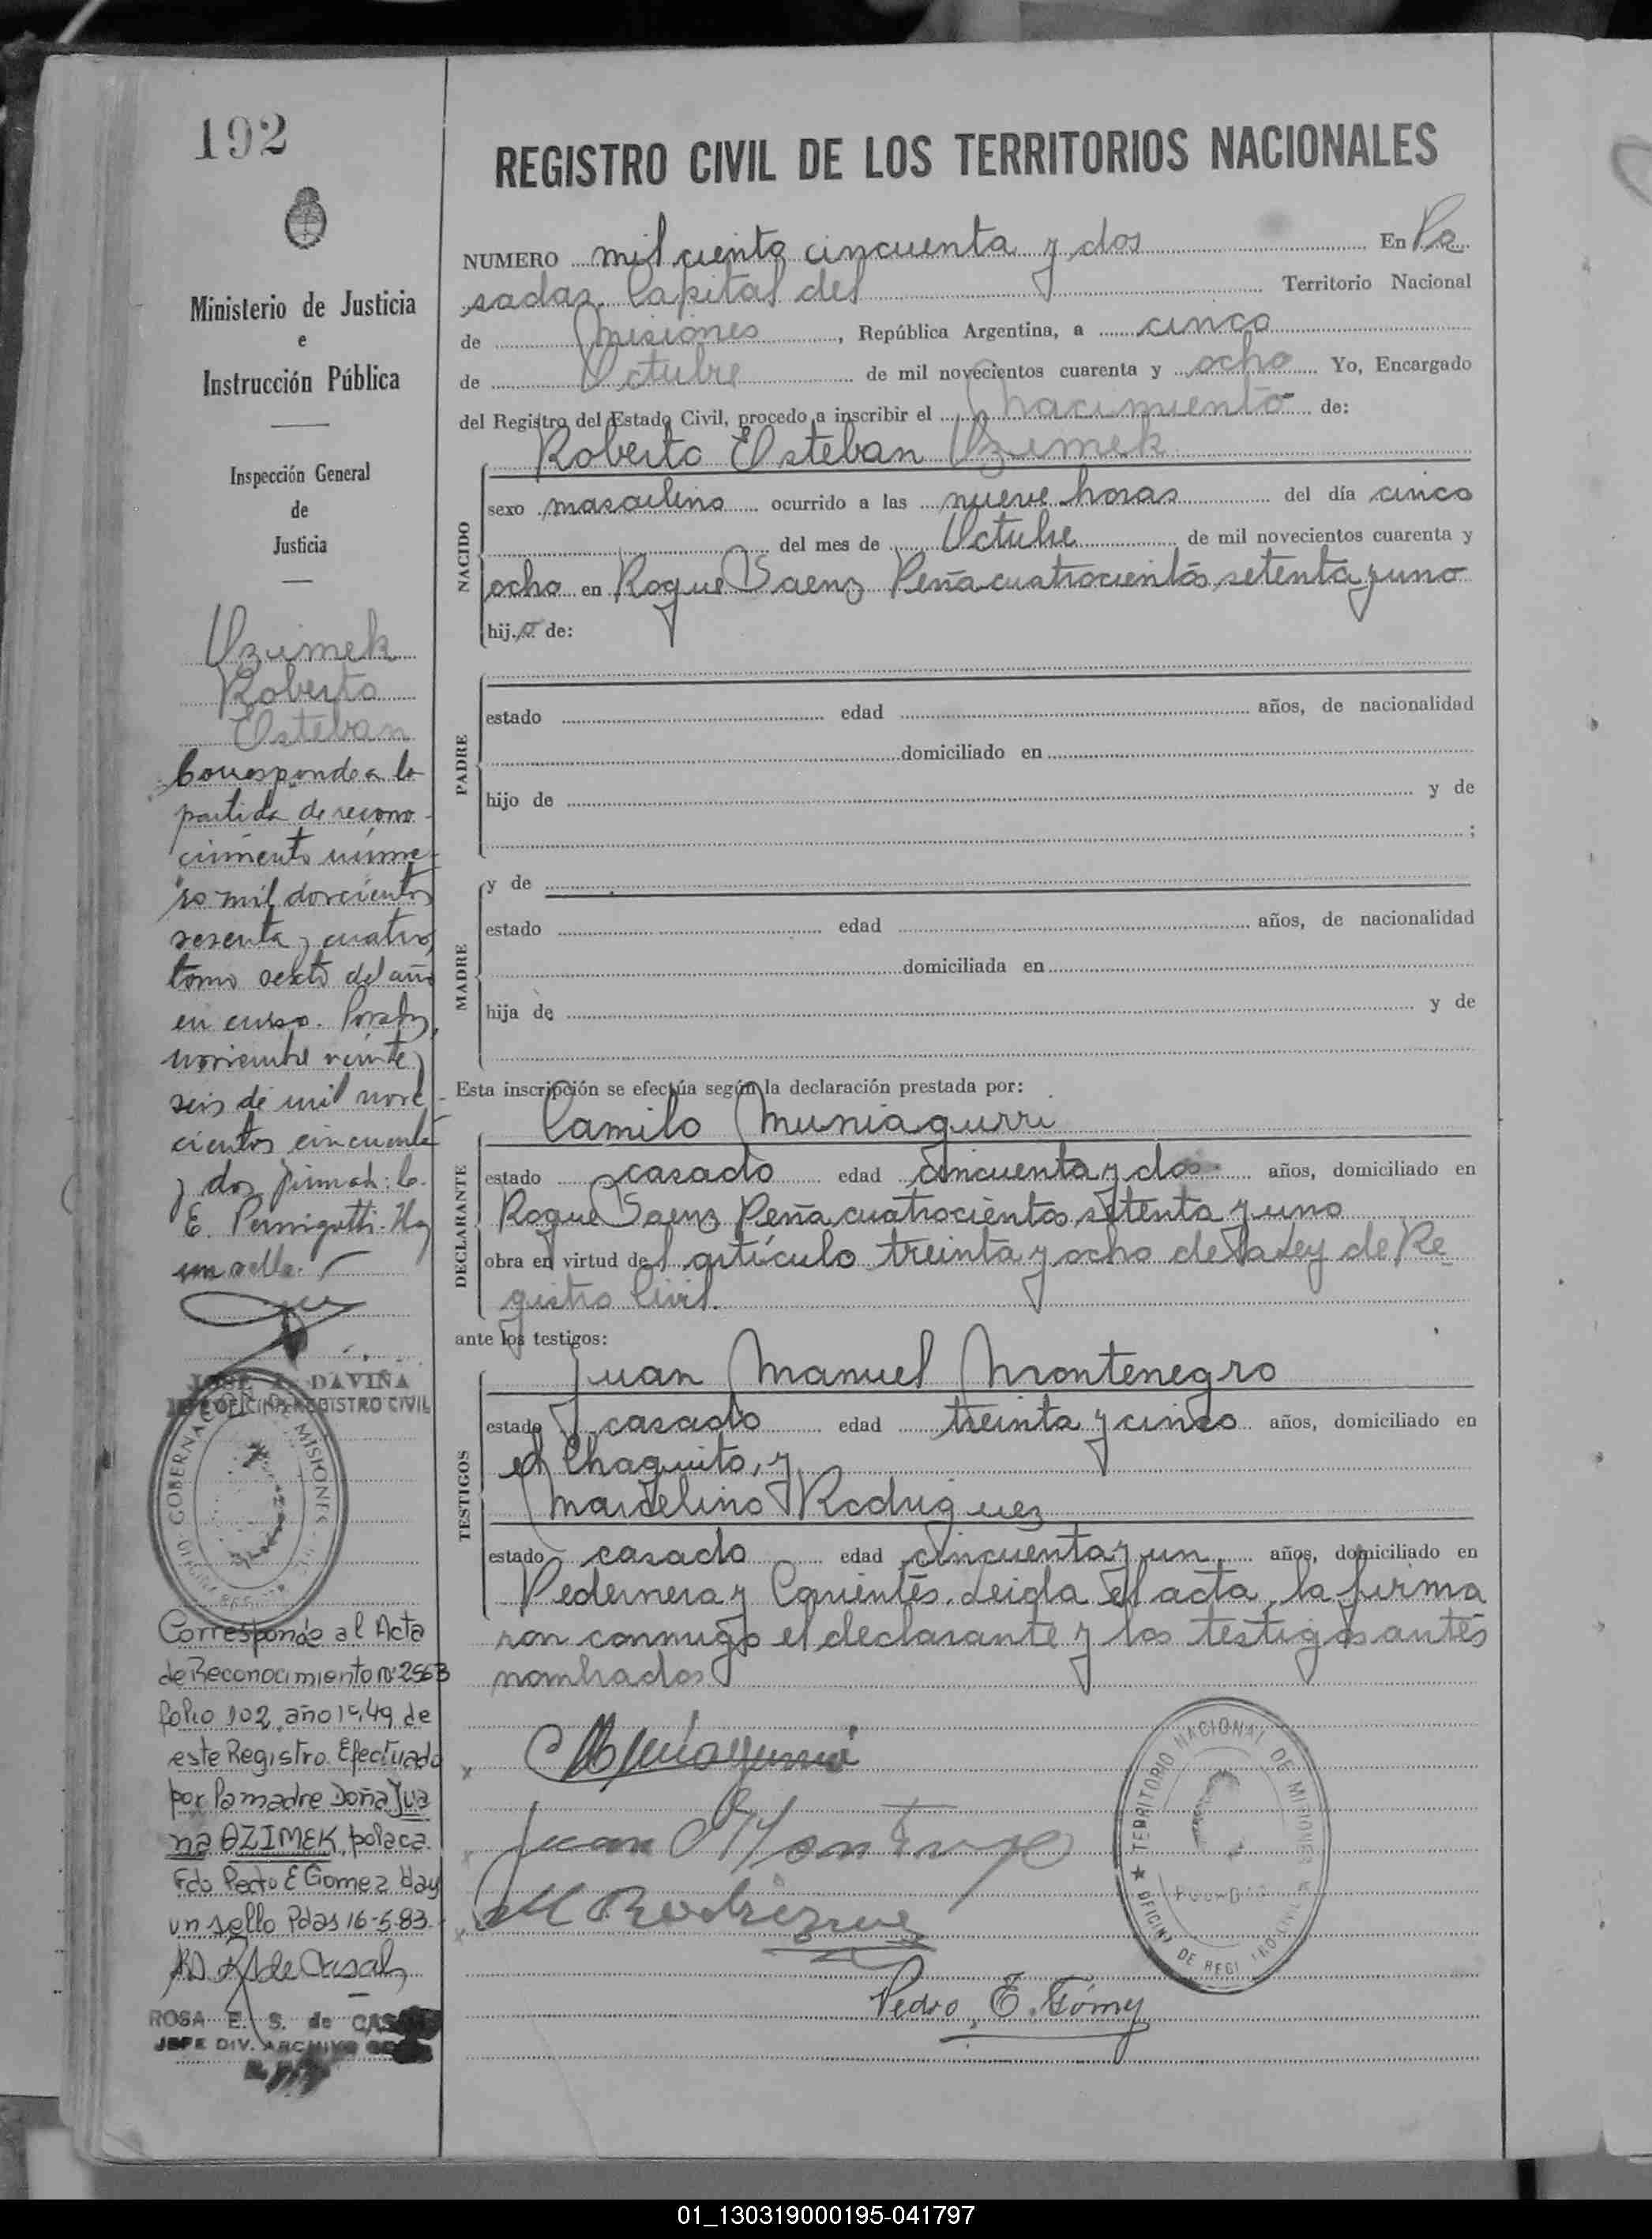 192
Ministerio de Justicia
e
Instrucción Pública
Inspección General
de
Justicia
Ozimek
Roberto
Esteban
Corresponde a la
partida de recono-
cimiento núme-
ro mil doscientos
sesenta y cuatro,
tomo sexto del año
en curso. Posadas,
noviembre veinte y
seis de mil nove-
cientos cincuenta
y dos firmado:
E. Pernigotti. Hay
un sello.
JOSE DAVIÑA
OFICINA REGISTRO CIVIL
GOBERNACION DE MISIONES
Corresponde al Acta
de Reconocimiento Nº 2563
folio 102 año 1949 de
este Registro. Efectuado
por la madre Doña Jua
na OZIMEK, polaca.
Fdo Pedro E Gomez Hay
un sello Pdas 16-5-83.
ROSA E. S. de CAS
JEFE DIV. ARCHIVO
REGISTRO CIVIL DE LOS TERRITORIOS NACIONALES
NUMERO mil ciento cincuenta y dos En Po
sadas. Capital del Territorio Nacional
de Misiones, República Argentina, a cinco
de Octubre de mil novecientos cuarenta y ocho Yo, Encargado
del Registro del Estado Civil, procedo a inscribir el nacimiento de:
Roberto Esteban Ozimek
NACIDO
sexo masculino ocurrido a las nueve horas del día cinco
del mes de Octubre de mil novecientos cuarenta y
ocho en Roque Saenz Peña cuatrocientos setenta y uno
hijo de:
PADRE
estado edad años, de nacionalidad
domiciliado en
hijo de y de
;
MADRE
y de
estado edad años, de nacionalidad
domiciliada en
hija de y de
Esta inscripción se efectúa según la declaración prestada por:
Camilo Muniagurri
DECLARANTE
estado casado edad cincuenta y dos años, domiciliado en
Roque Saenz Peña cuatrocientos setenta y uno
obra en virtud del artículo treinta y ocho de la Ley de Re
gistro Civil.
ante los testigos:
TESTIGOS
Juan Manuel Montenegro
estado casado edad treinta y cinco años, domiciliado en
el Chaquito, y
Marcelino Rodriguez
estado casado edad cincuenta y un años, domiciliado en
Pedernera y Corrientes. Leida el acta, la firma
ron conmigo el declarante y los testigos antes
nombrados
C Muniagurri
Juan M Montenegro
M Rodriguez
TERRITORIO NACIONAL DE MISIONES
OFICINA DE REGISTRO CIVIL
POSADAS
Pedro E. Gómez
01_130319000195-041797